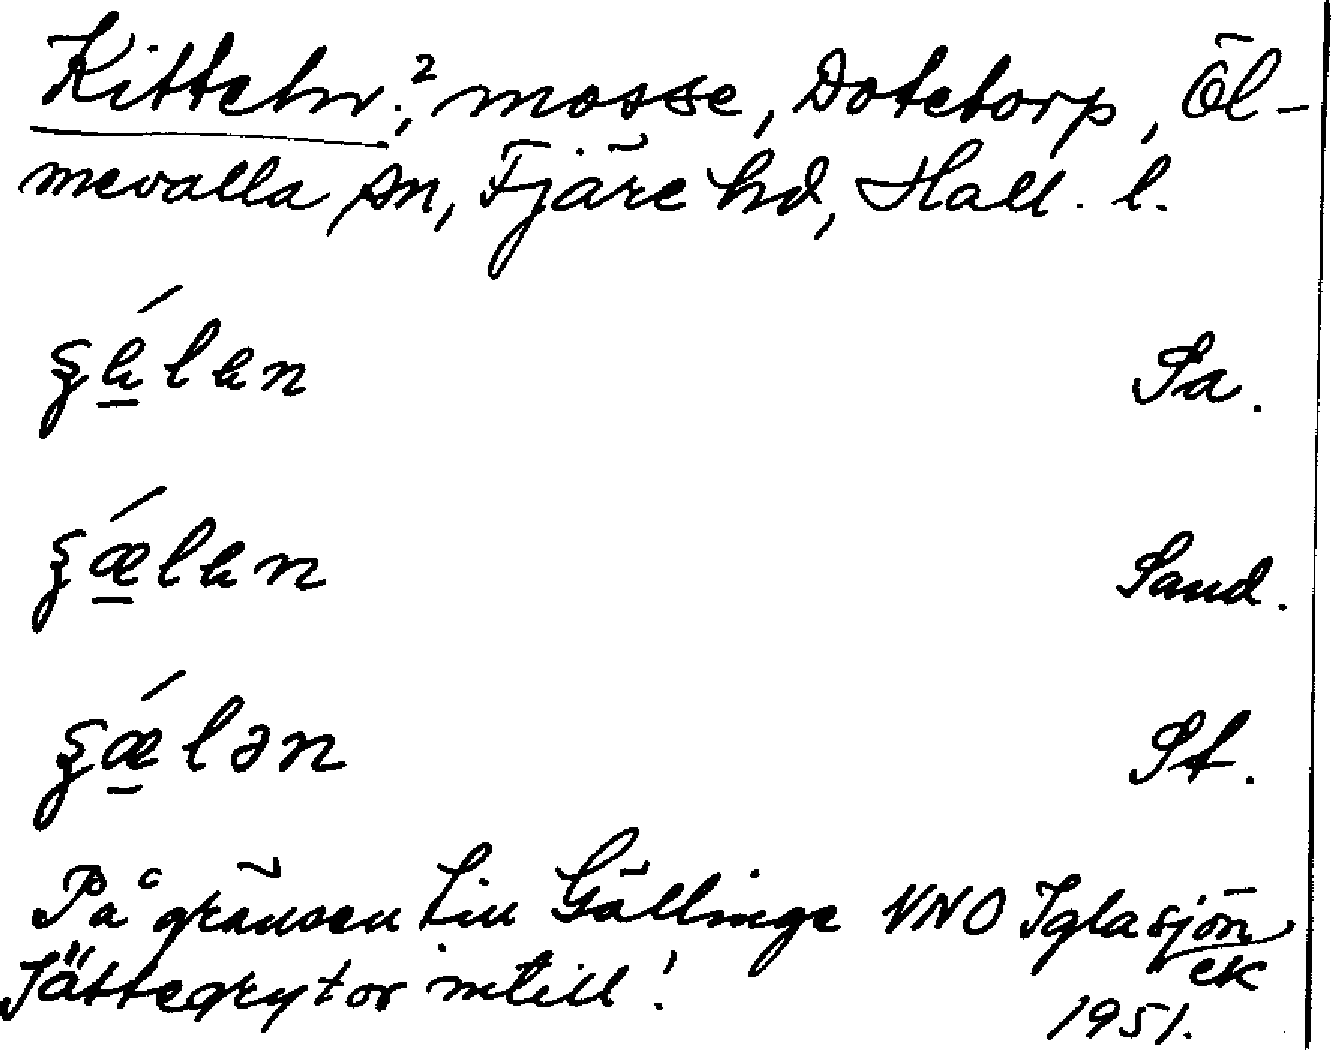 Kitteln,² mosse, Dotetorp, Öl-
mevalla sn, Fjäre hd, Hall. l.
Sa.
Sand.
St.
På gränsen till Gällinge VNO Iglasjön
Jättegrytor intill! EK
1951.